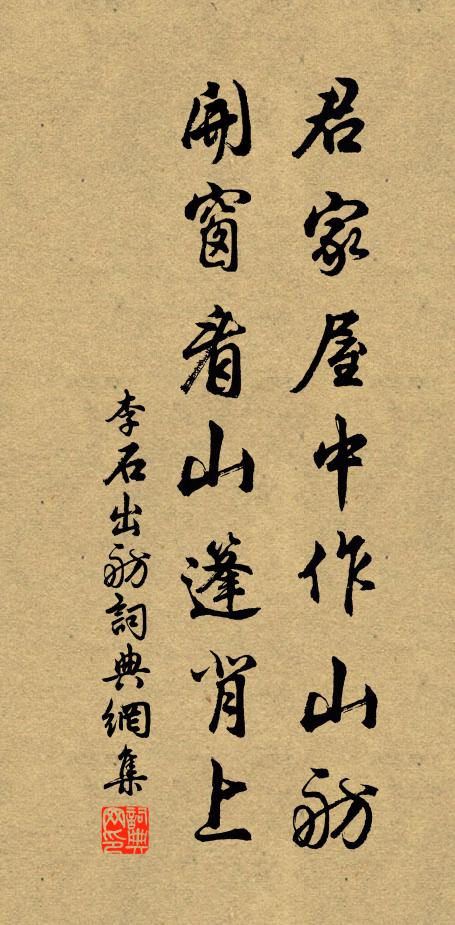 君家屋中作山舫
開窗看山篷背上
李石出舫詞典網集
詞典網印